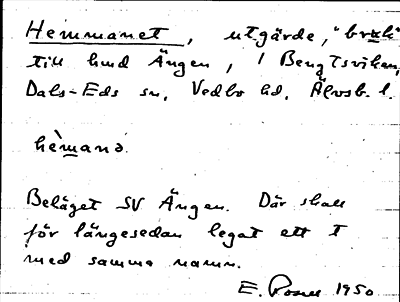 Hemmanet, utgärde, "bruk"
till hmd Ängen, / Bengtsviken,
Dals-Eds sn, Vedbo hd, Älvsb. l.
hèmanə.
Beläget SV Ängen. Där skall
för längesedan legat ett T
med samma namn.
E. 1950